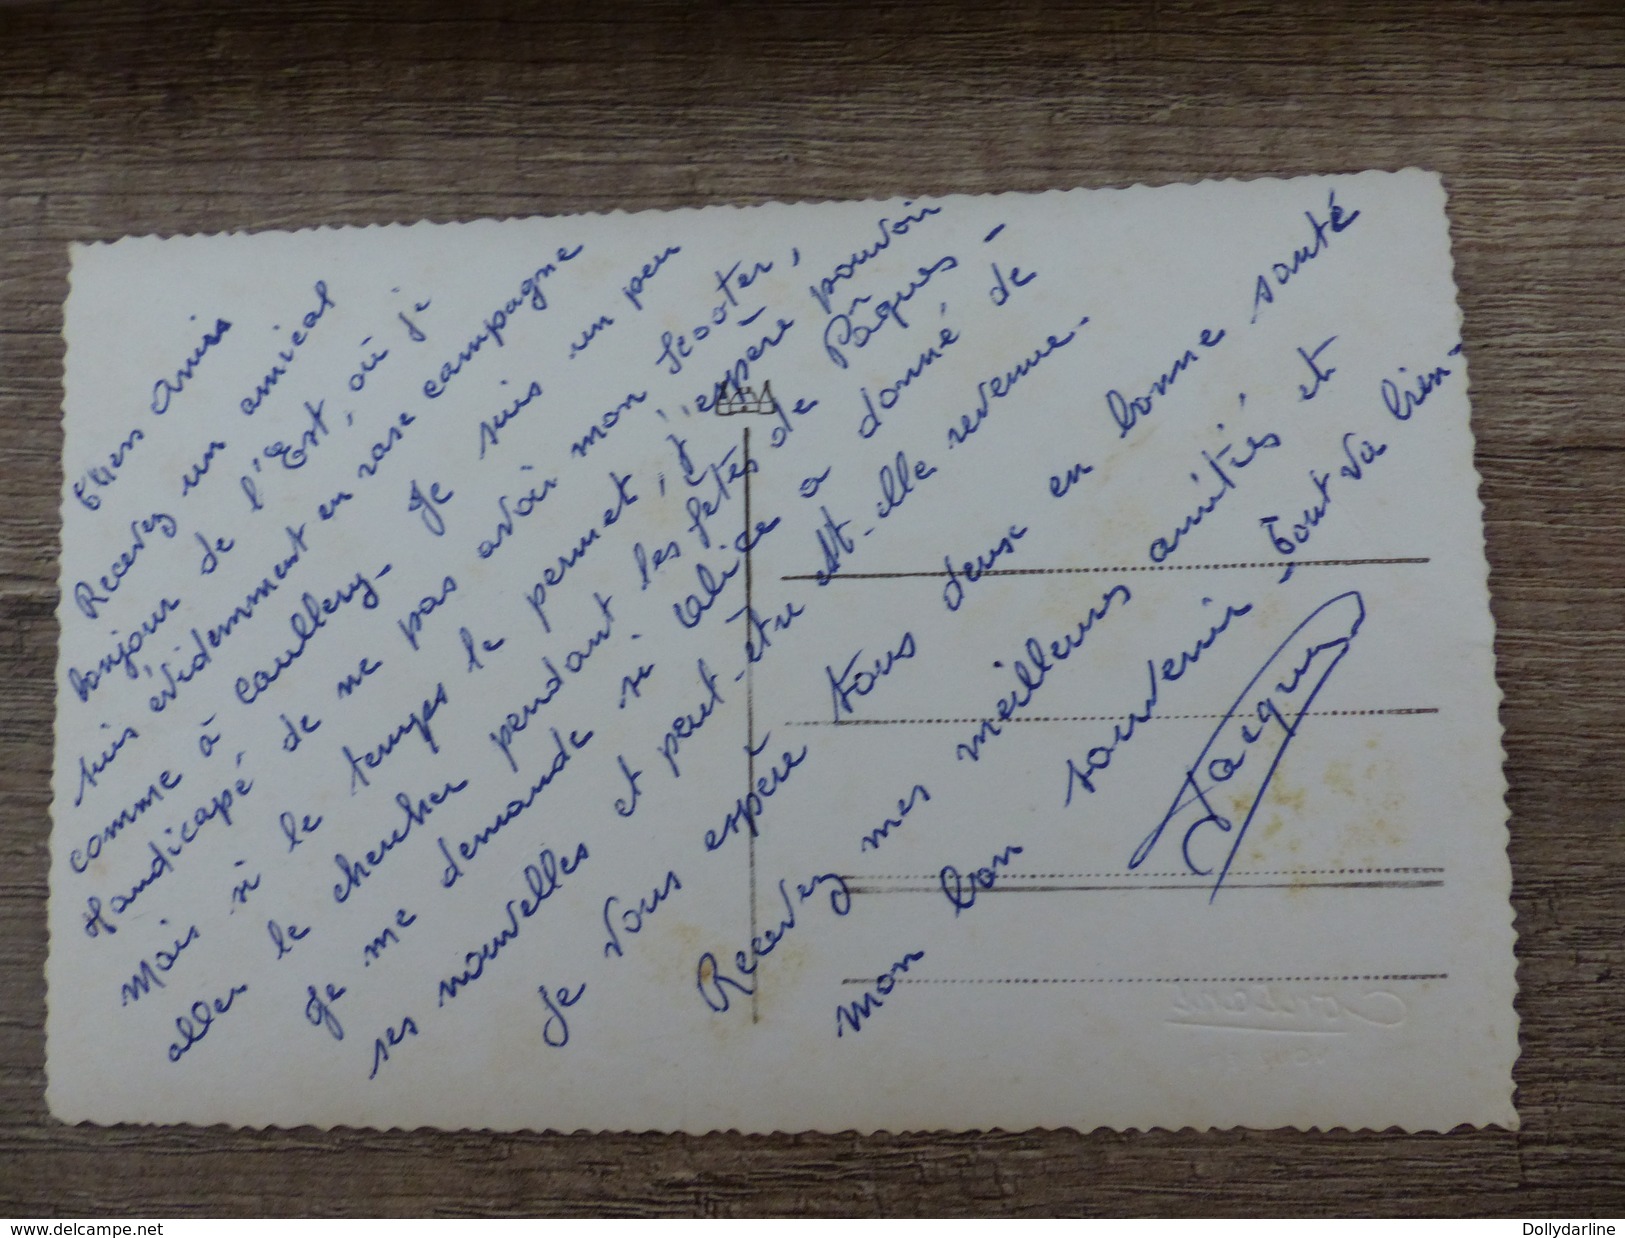 Chers Amis
Recevez un amical
bonjour de l'Est, où je
suis évidemment en rase campagne
comme à Caullery - Je suis un peu
Handicapé de ne pas avoir mon scooter,
Mais si le temps le permet, j'espère pouvoir
aller le chercher pendant les fêtes de Pâques -
Je me demande si a donné de
ses nouvelles et peut-être est-elle revenue.
Je vous espère tous deux en bonne santé
Recevez mes meilleurs amitiés, et
mon bon souvenir - Tout va bien -
Jacques
www.delcampe.net
Dollydarline